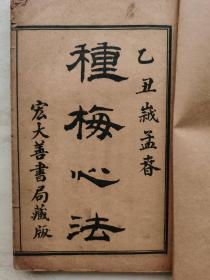 乙丑嵗孟春
種梅心法
宏大善書局藏版